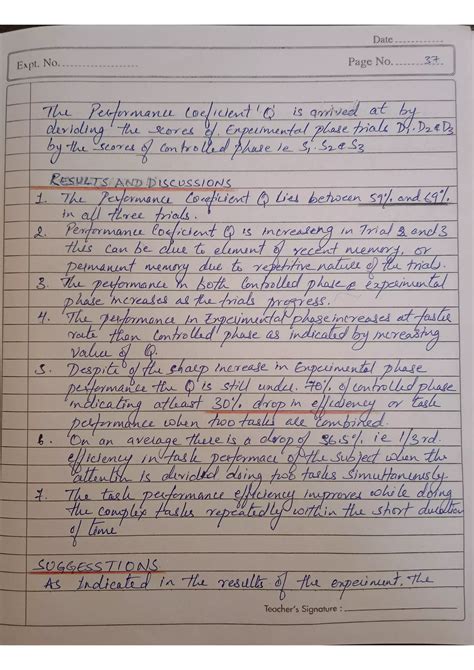 Date ..............
Expt. No. ......................
Page No. ........37.
The Performance Coeficient 'Q' is arrived at by
deviding the scores of Experimental phase trials D1. D2 & D3
by the scores of controlled phase ie S1. S2 & S3
RESULTS AND DISCUSSIONS
1. The Performance Coeficient Q lies between 59% and 69%
in all three trials.
2. Performance Coeficient Q is increaseing in Trial 2 and 3
this can be due to element of recent memory, or
permanent memory due to repetitive nature of the trial.
3. The performance in both controlled phase & experimental
phase increases as the trials progress.
4. The performance in Experimental phase increases at faster
rate than controlled phase as indicated by increasing
value of Q.
5. Despite of the sharp increase in Experimental phase
performance the Q is still under 70% of controlled phase
indicating atleast 30% drop in efficiency or task
performance when two tasks are combined.
6. On an average there is a drop of 36.5% ie 1/3rd.
efficiency in task performace of the subject when the
attention is devided doing two tasks simultaneously
7. The task performance efficiency improves while doing
the complex tasks repeatedly within the short duration
of time
SUGGESSTIONS
As Indicated in the results of the experiment, the
Teacher's Signature : ______________